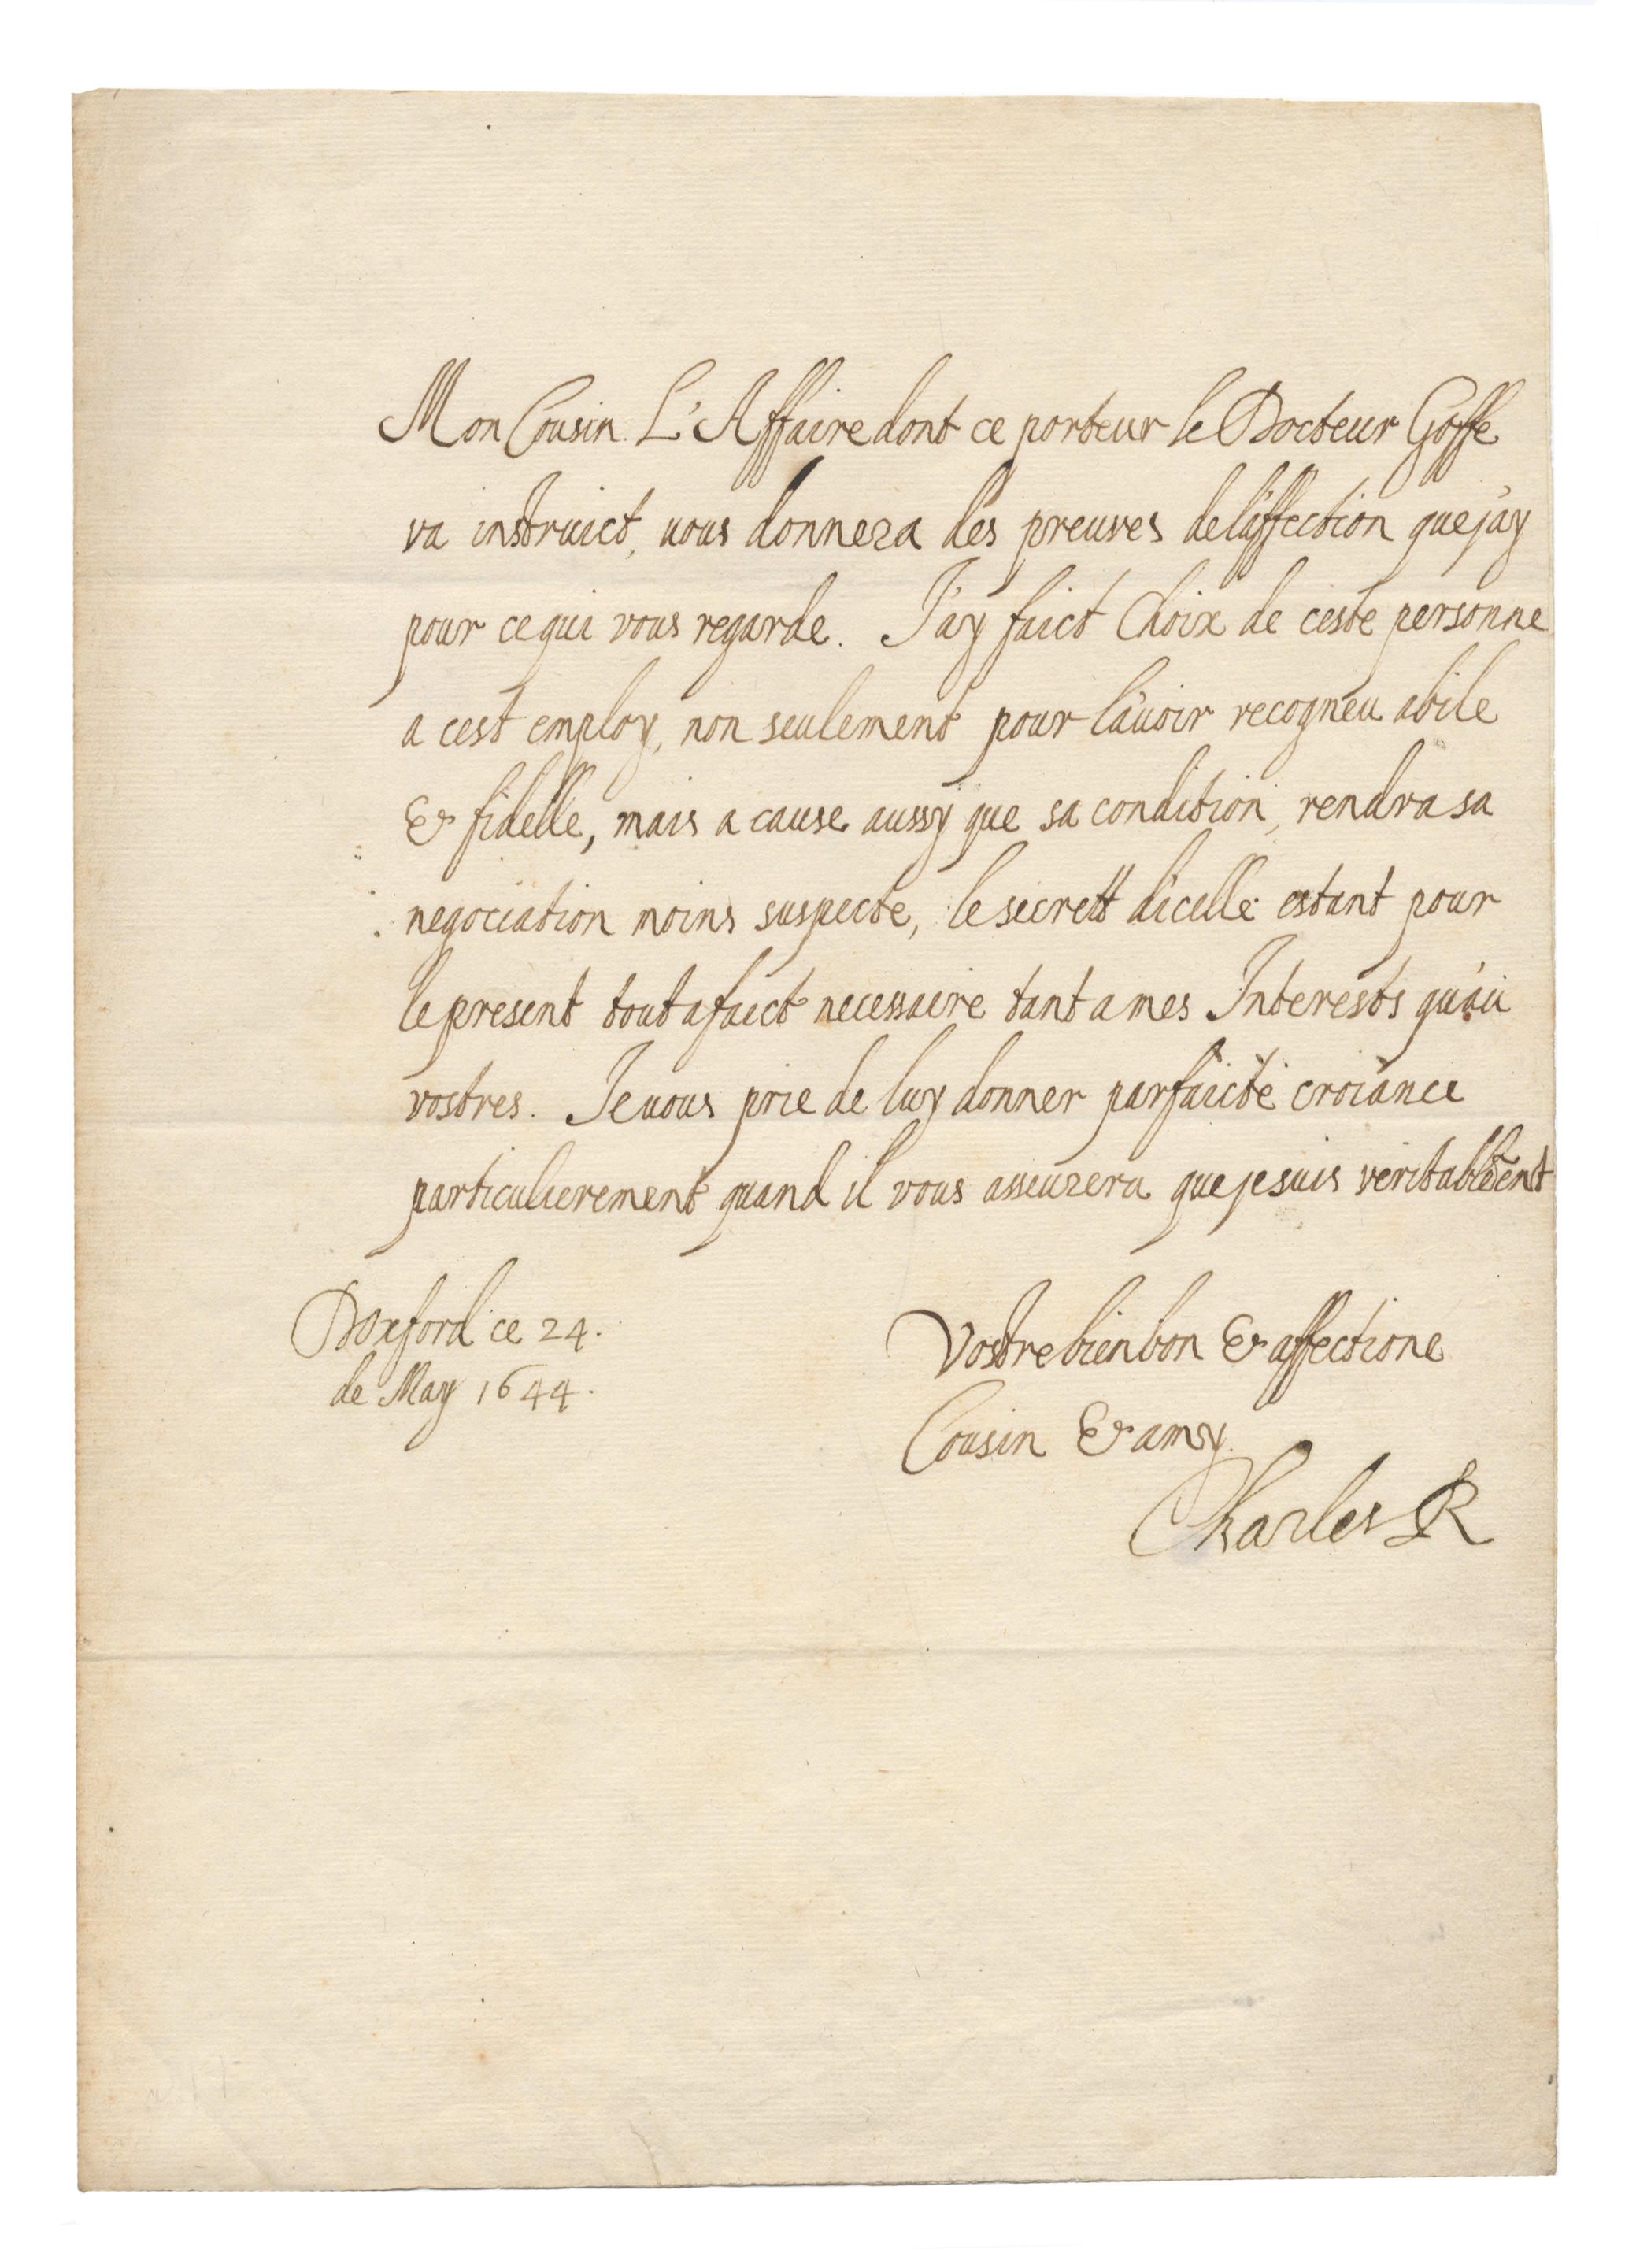 Mon Cousin. L'Affaire dont ce porteur le Docteur Goffe
va instruict, vous donnera des preuves de l'affection que j'ay
pour ce qui vous regarde. J'ay faict Choix de ceste personne
a cest employ, non seulement pour l'avoir recogneu abile
& fidelle, mais a cause aussy que sa condition, rendra sa
negociation moins suspecte, le secrett d'icelle estant pour
le present tout a faict necessaire tant a mes Interests qu'au
vostres. Je vous prie de luy donner parfaicte croiance
particulierement quand il vous asseurera que je suis veritablem̃ent
D'Oxford ce 24.
de May 1644.
Vostre bien bon & affectione
Cousin & amy.
Charles R